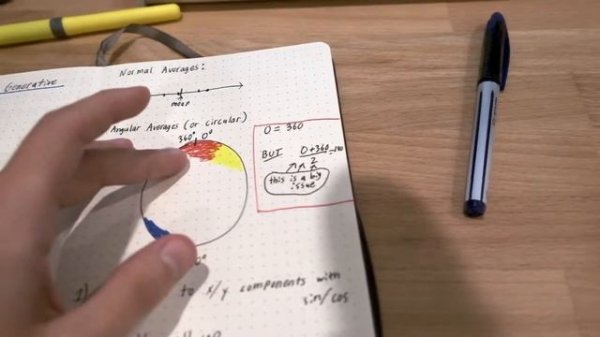 Generative
Normal Averages:
mean
Angular Averages (or circular)
360° 0°
0 = 360
BUT 0+360 = 180
2
this is a big
issue
1)
to x/y components with
sin/cos